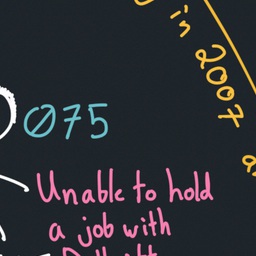 in 2007
Ø75
Unable to hold
a job with